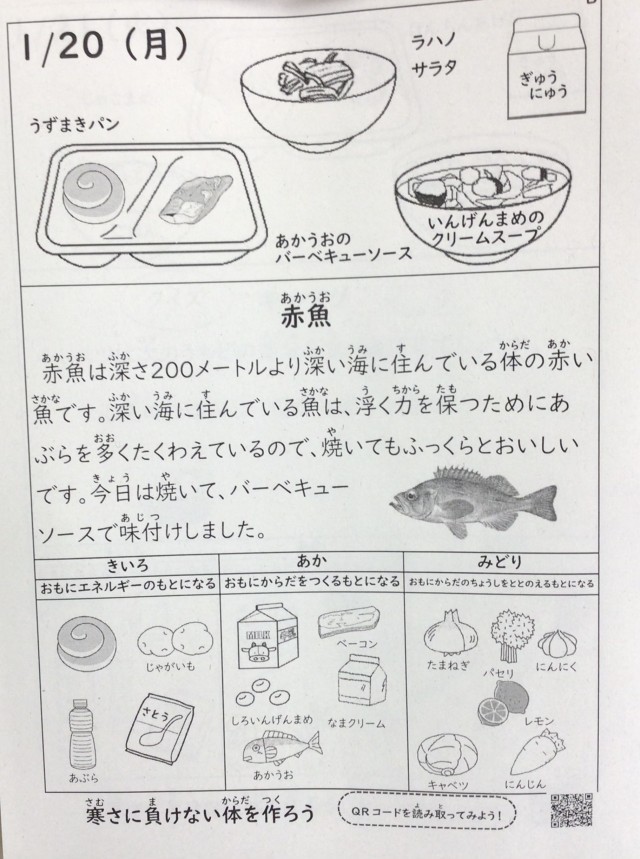 1/20（月）
ラハノ
サラタ
ぎゅう
にゅう
うずまきパン
いんげんまめの
クリームスープ
あかうおの
バーベキューソース
あかうお
赤魚
あかうお ふか ふか うみ す からだ あか
赤魚は深さ200メートルより深い海に住んでいる体の赤い
さかな ふか うみ す さかな う ちから たも
魚です。深い海に住んでいる魚は、浮く力を保つためにあ
おお や
ぶらを多くたくわえているので、焼いてもふっくらとおいしい
きょう や
です。今日は焼いて、バーベキュー
あじつ
ソースで味付けしました。
きいろ あか みどり
おもにエネルギーのもとになる おもにからだをつくるもとになる おもにからだのちょうしをととのえるもとになる
じゃがいも
さとう
あぶら
MILK
ベーコン
しろいんげんまめ
なまクリーム
あかうお
たまねぎ
パセリ
にんにく
レモン
キャベツ
にんじん
さむ ま からだ つく
寒さに負けない体を作ろう
よ と
QRコードを読み取ってみよう！